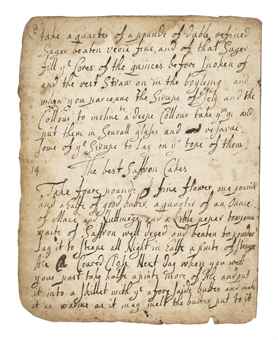 take a quarter of a pounde of duble refined
Suger beaten verie fine, and of that Suger
fill ye Cores of the quinces before spoken of
and the rest Straw on in the boyleing and
when you perceaue the Sirupe to Jely and the
Collour to incline a deepe Collour take ym up and
put them in Seuerall glases and reserue
some of ye Sirupe to lay on ye tope of them
19 The best Saffron Cakes
Take foure pounds of fine flower one pound
and a halfe of good butter, a quarter of an Ounce
of Mace and Nuttmegs,
parte of Saffron well dryed and beaten to pouder
lay it to steepe all Night in halfe a pinte of
Ale Close Next day when you
your past take halfe a pint more of Ale and put
it into a Skillet with ye afore said butter and make
it as warme as it may melt the butter put to it